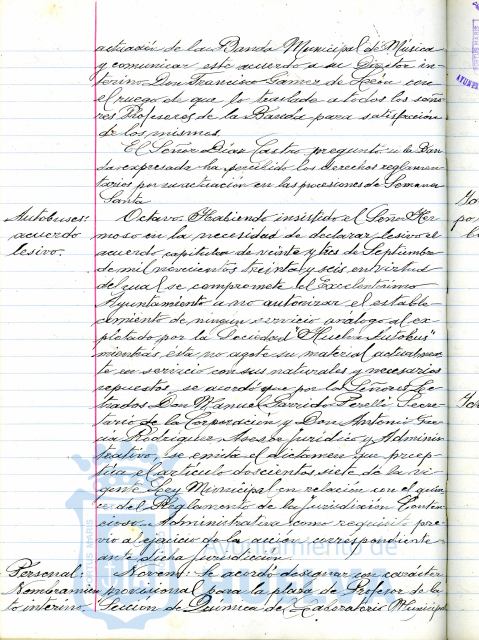 actuación de la Banda Municipal de Música
y comunicar este acuerdo a su Director in
terino Don Francisco Gámez de León con
el ruego de que lo traslade a todos los seño
res Profesores de la Banda para satisfacción
de los mismos.
El Señor Díaz Castro pregunto si la Ban
da expresada ha percibido los derechos reglamen
tarios por su actuación en las procesiones de Semana
Santa
Autobuses:
acuerdo
lesivo.
Octavo: Habiendo insistido el Señor Her
moso en la necesidad de declarar lesivo el
acuerdo capitular de veinte y tres de Septiembre
de mil novecientos treinta y seis en virtud
del cual se compromete el Excelentísimo
Ayuntamiento a no autorizar el estable
cimiento de ningun servicio análogo al ex
plotado por la Sociedad "Huelva Autobus"
mientras ésta no agote su material actualmen
te en servicio con sus naturales y necesarios
repuestos, se acordó que por los Señores Le
trados Don Manuel Garrido Perelló Secre
tario de la Corporación y Don Antonio Gar
cia Rodriguez Asesor Juridico y Adminis
trativo, se emita el dictamen que precep
túa el artículo doscientos siete de la vi
gente Ley Municipal en relación con el quin
ce del Reglamento de la Jurisdicción Conten
cioso-Administrativa como requisito pre
vio al ejercicio de la acción correspondiente
ante dicha jurisdicción.
Personal:
Nombramien
to interino.
Noveno: Se acordó designar con carácter
provisional para la plaza de Profesor de la
Sección de Química de Laboratorio Municipal
Ayuntamiento de